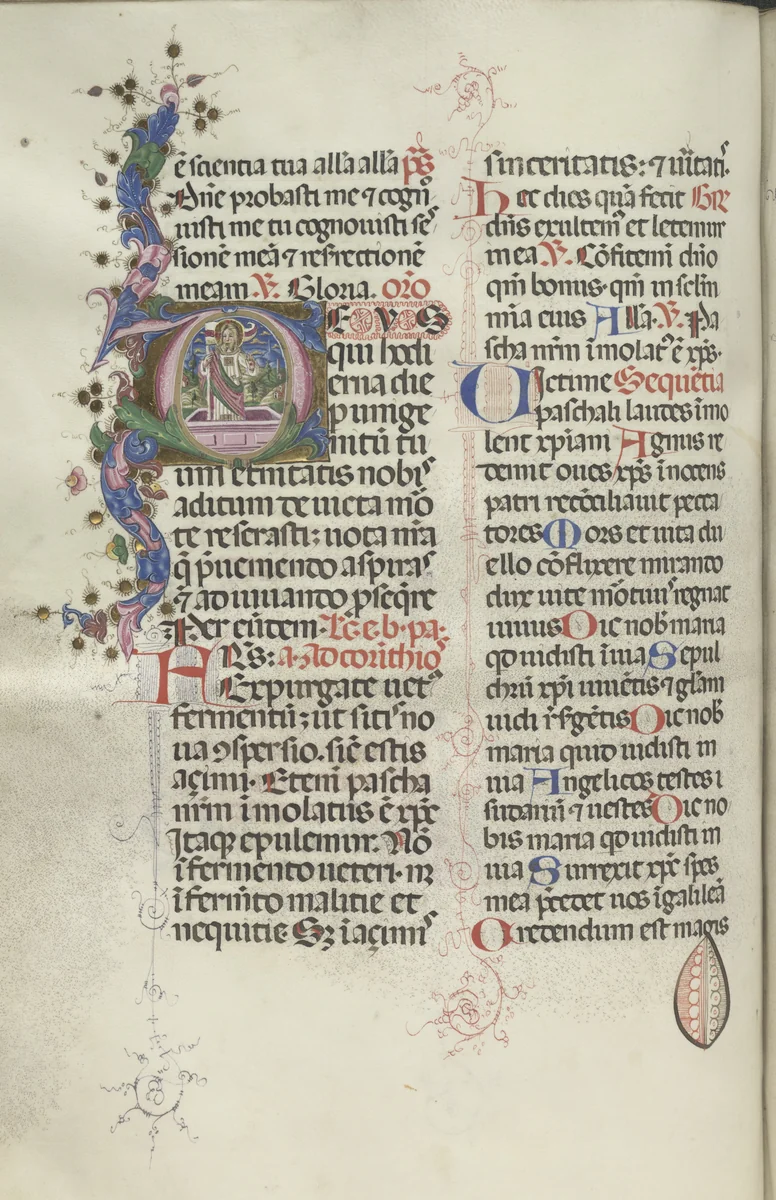 ē scientia tua alła alła p̄s
Dn̄e probasti me ⁊ cogn̄
uisti me tu cognouisti se
sionē meā ⁊ resrectionē
meam ℣. Gloria. or̄o
DEUS
qui hodi
erna die
p unige
nitū tu
um eťnitatis nobiˢ
aditum deuicta mō
te reserasti: uota nr̄a
q̄ p̄ueniendo aspiraˢ
⁊ adiuuando p̱seq̄re
Per eūdem. Lc̄. e. b. pa.
FRˢ: a. Ad corīthioˢ
Expurgate uetˢ
fermentū; ut sitiˢ no
ua ꝯspersio. sic̄ estis
açimi. Etenī pascha
nr̄m īmolatus ē xp̄c
Itaqꝫ epulemur. Nō
ī fermento ueteri. nꝫ
ī ferm̄to malitie et
nequitie Sꝫ ī açimˢ
sinceritatis: ⁊ uīťati.
Hec dies quā fecit Gr̄
dn̄s exultemˢ et letemur
in ea ℣. Cōfitemī dn̄o
qm̄ bonus. qm̄ in seclm̄
mīa eius Alła. ℣. Pa
scha nr̄m īmolatˢ ē xp̄s.
Uictime Sequētia
paschali laudes īmo
lent xp̄iani Agnus re
demit oues xp̄s īnocens
patri recōciliauit pecca
tores Mors et uita du
ello cōflixere mirando
dux uite mōtuuˢ regnat
uiuus Dic nob̄ maria
qd uidisti ī uia Sepul
chrū xp̄i uiuētis ⁊ gl̄am
uidi r̄sḡētis Dic nob̄
maria quid uidisti in
uia Angelicos testes ⁊
sudariū ⁊ uestes Dic no
bis maria qd uidisti in
uia Surrexit xp̄c spes
mea p̄cedet uos ī galileā
Credendum est magis